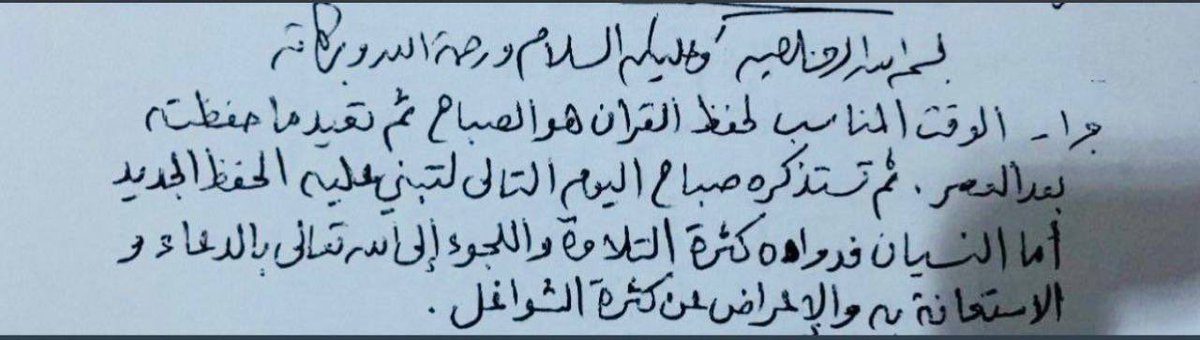 بسم الله الرحمن الرحيم وعليكم السلام ورحمة الله وبركاته
جـ١ـ الوقت المناسب لحفظ القرآن هو الصباح ثم تعيد ما حفظته
بعد العصر. ثم تستذكره صباح اليوم التالى لتبني عليه الحفظ الجديد
أما النسيان فدواءه كثرة التلاوة واللجوء إلى الله تعالى بالدعاء و
الاستعانة به والإعراض عن كثرة الشواغل.